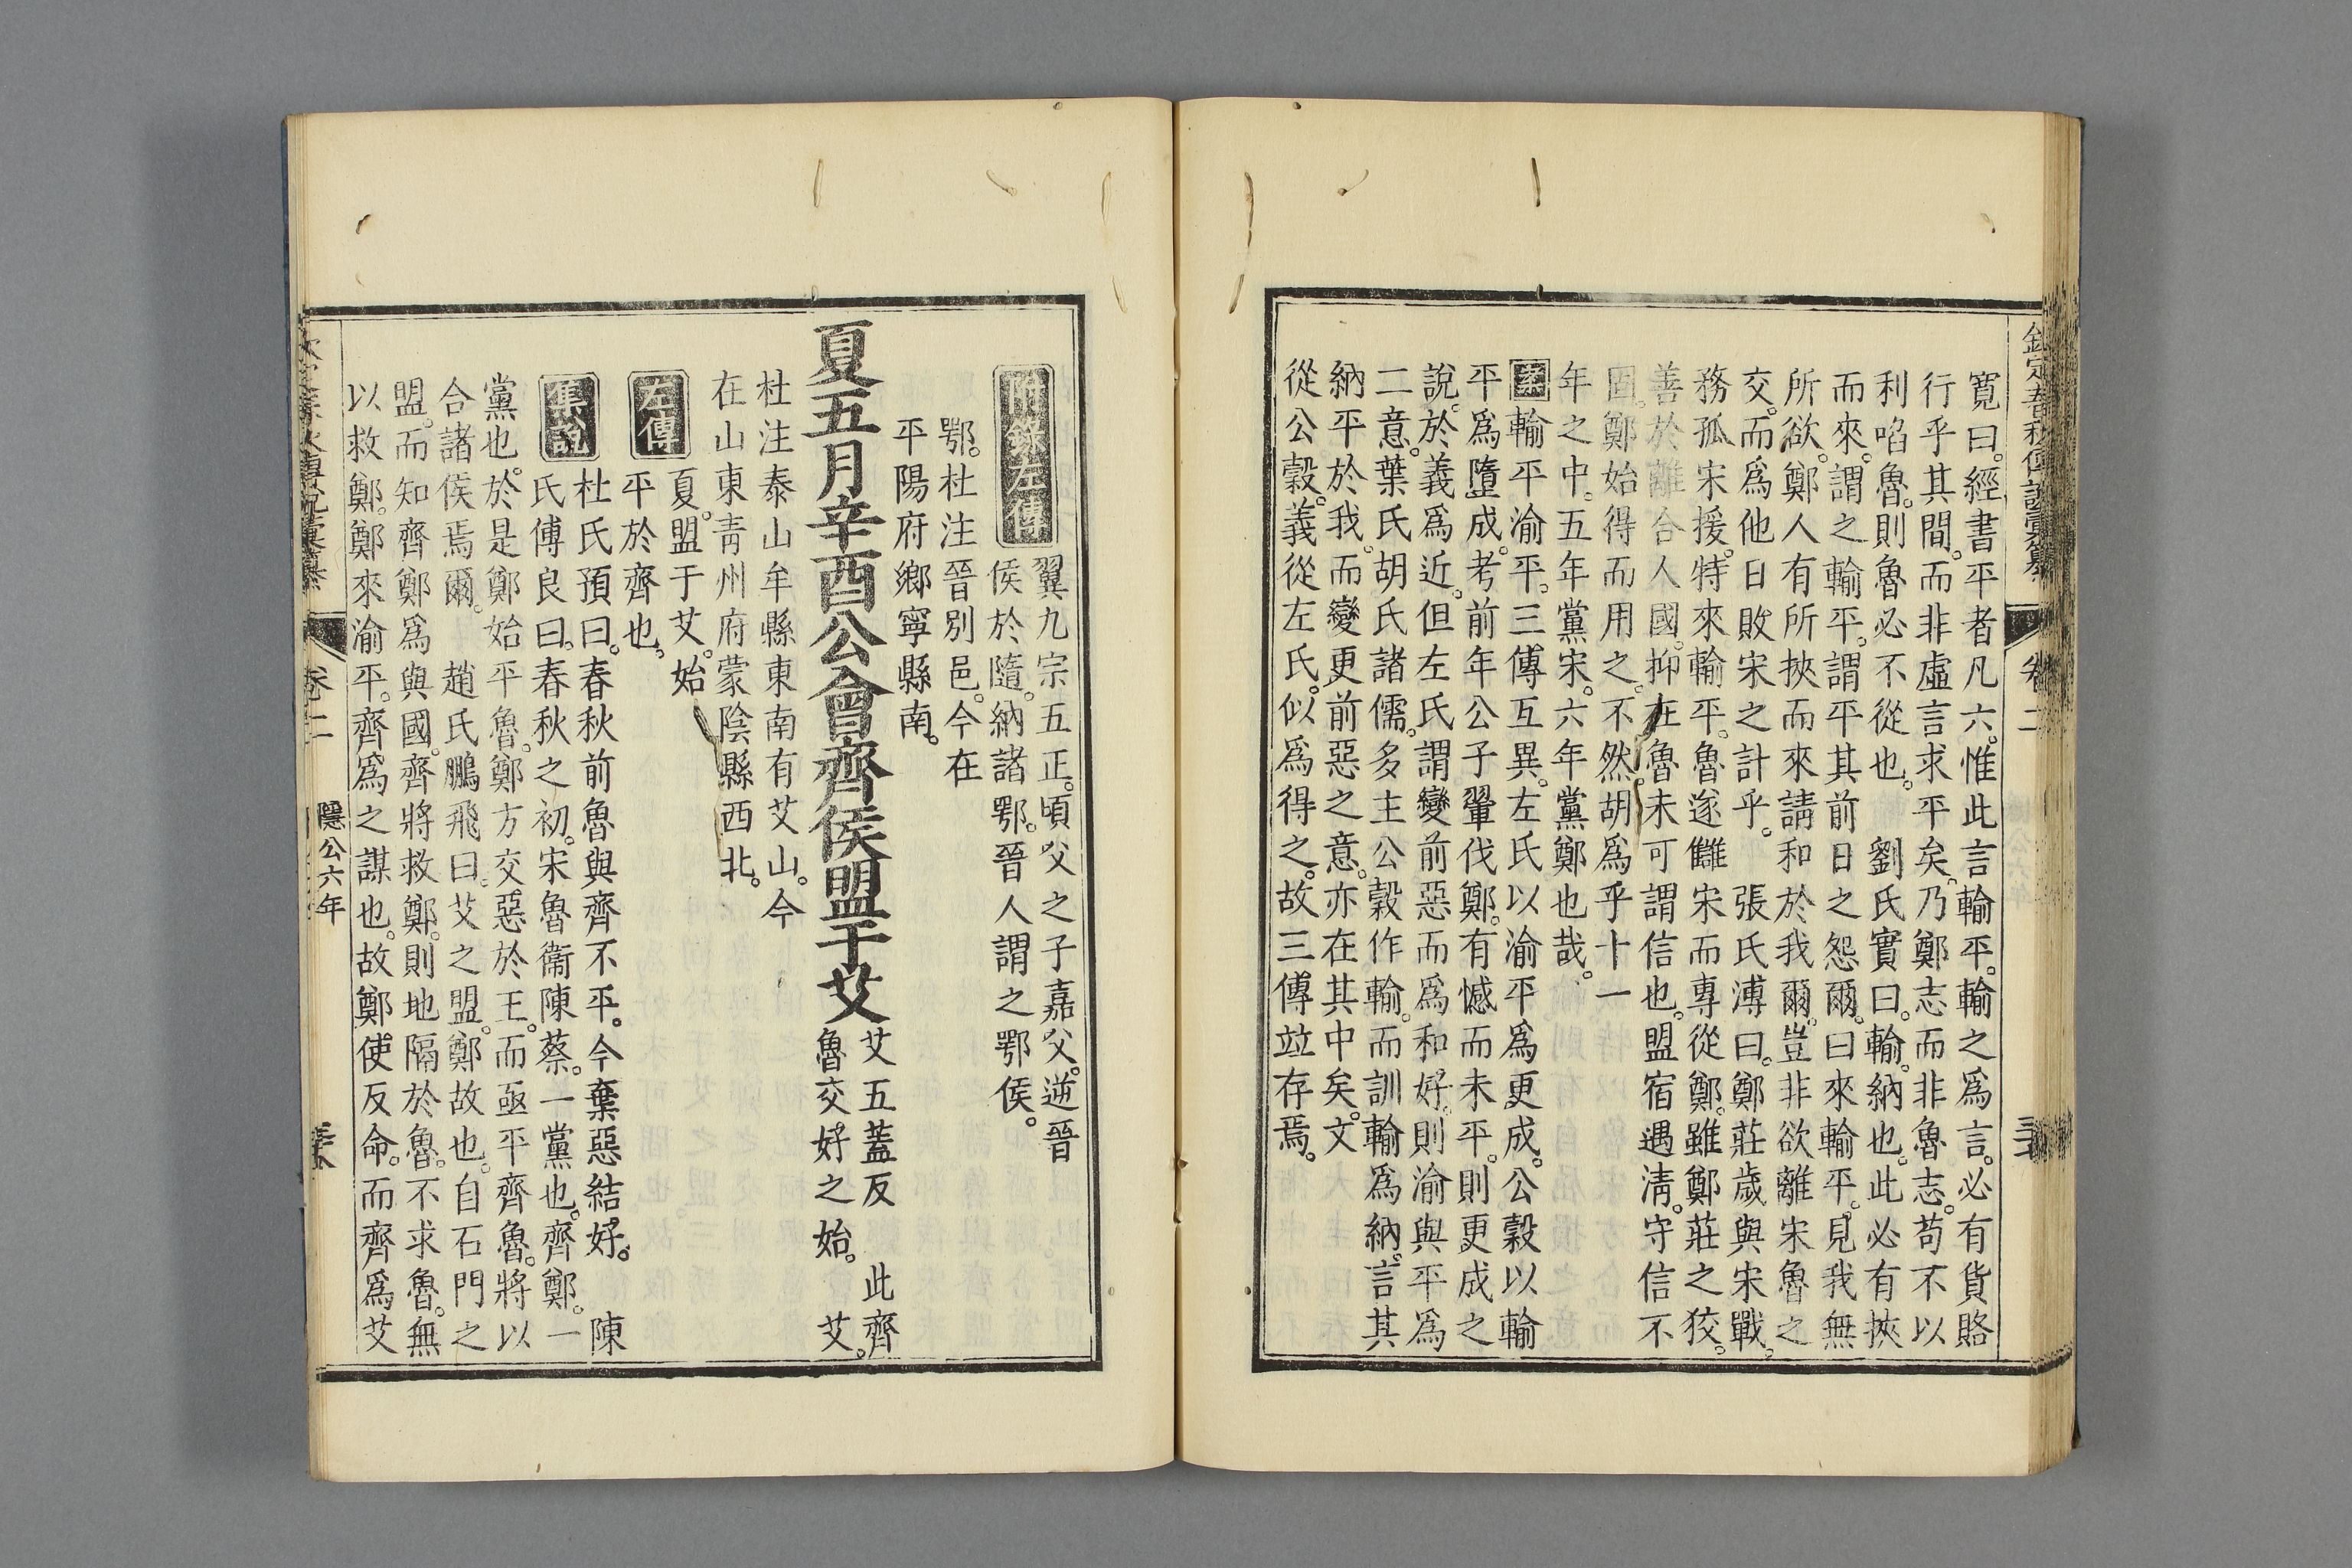 欽定春秋傳說彙纂 卷二
寬曰。經書平者凡六。惟此言輸平。輸之爲言。必有貨賂
行乎其間。而非虛言求平矣。乃鄭志而非魯志。苟不以
利啗魯。則魯必不從也。 劉氏實曰。輸。納也。此必有挾
而來。謂之輸平。謂平其前日之怨爾。曰來輸平。見我無
所欲。鄭人有所挾而來請和於我爾。豈非欲離宋魯之
交。而爲他日敗宋之計乎。 張氏溥曰。鄭莊歲與宋戰。
務孤宋援。特來輸平。魯遂讎宋而專從鄭。雖鄭莊之狡。
善於離合人國。抑在魯未可謂信也。盟宿遇淸。守信不
固。鄭始得而用之。不然。胡爲乎十一
年之中。五年黨宋。六年黨鄭也哉。
案輸平渝平。三傳互異。左氏以渝平爲更成。公穀以輸
平爲墮成。考前年公子翬伐鄭。有憾而未平。則更成之
說。於義爲近。但左氏謂變前惡而爲和好。則渝與平爲
二意。葉氏胡氏諸儒。多主公穀作輸。而訓輸爲納。言其
納平於我。而變更前惡之意。亦在其中矣。文
從公穀。義從左氏。似爲得之。故三傳竝存焉。
附錄左傳
翼九宗五正。頃父之子嘉父。逆晉
侯於隨。納諸鄂。晉人謂之鄂侯。
鄂。杜注晉別邑。今在
平陽府鄉寧縣南。
夏五月辛酉公會齊侯盟于艾
艾五蓋反 此齊
魯交好之始。 艾。
杜注泰山牟縣東南有艾山。今
在山東靑州府蒙陰縣西北。
左傳
夏。盟于艾。始
平於齊也。
集說
杜氏預曰。春秋前魯與齊不平。今棄惡結好。 陳
氏傅良曰。春秋之初。宋魯衞陳蔡。一黨也。齊鄭。一
黨也。於是鄭始平魯。鄭方交惡於王。而亟平齊魯。將以
合諸侯焉爾。 趙氏鵬飛曰。艾之盟。鄭故也。自石門之
盟。而知齊鄭爲與國。齊將救鄭。則地隔於魯。不求魯。無
以救鄭。鄭來渝平。齊爲之謀也。故鄭使反命。而齊爲艾
卷二 隱公六年